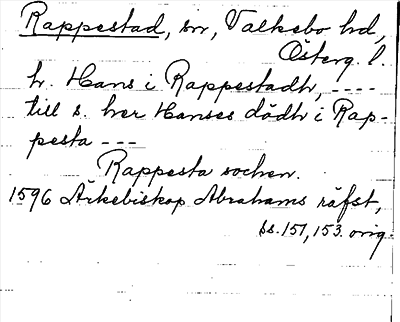 Rappestad, sn, Valkebo hd,
Österg. l.
hr. Hans i Rappestadh, ----
till s. her Hanses dödh i Rap-
pesta ---
Rappesta sochen.
1596 Ärkebiskop Abrahams räfst,
ss. 151, 153. orig.